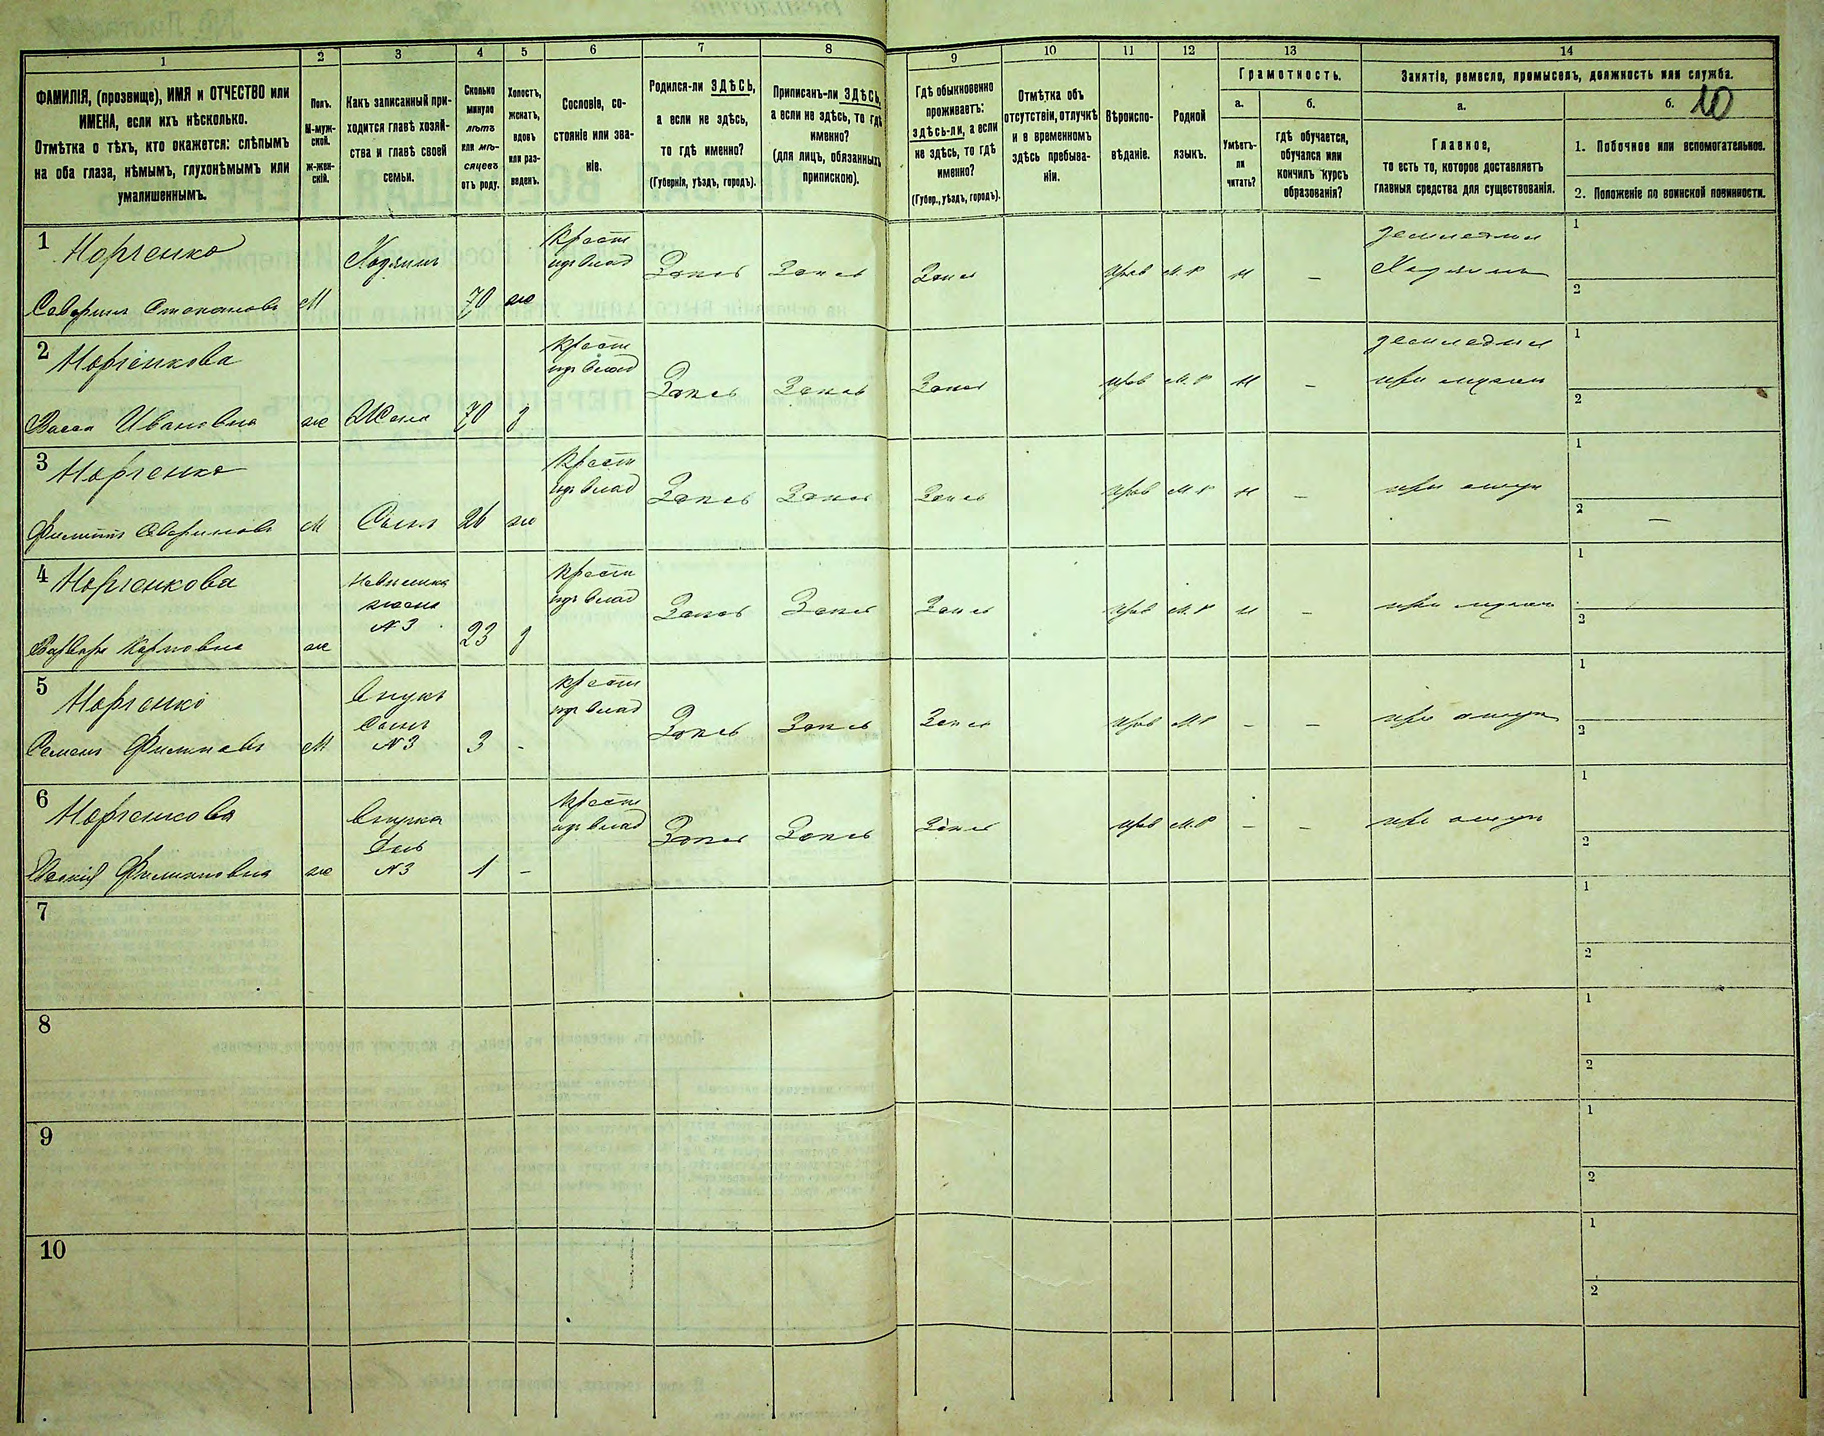 10
1
2
3
4
5
6
7
8
9
10
11
12
13
14
ФАМИЛІЯ, (прозвище), ИМЯ и ОТЧЕСТВО или
ИМЕНА, если ихъ нѣсколько.
Отмѣтка о тѣхъ, кто окажется: слѣпымъ
на оба глаза, нѣмымъ, глухонѣмымъ или
умалишеннымъ.
Полъ.
М-муж-
ской.
Ж-жен-
скій.
Какъ записанный при-
ходится главѣ хозяй-
ства и главѣ своей
семьи.
Сколько
минуло
лѣтъ
или мѣ-
сяцевъ
отъ роду.
Холостъ,
женатъ,
вдовъ
или раз-
веденъ.
Сословіе, со-
стояніе или зва-
ніе.
Родился-ли ЗДѢСЬ,
а если не здѣсь,
то гдѣ именно?
(Губернія, уѣздъ, городъ).
Приписанъ-ли ЗДѢСЬ,
а если не здѣсь, то гдѣ
именно?
(для лицъ, обязанныхъ
припискою).
Гдѣ обыкновенно
проживаетъ:
здѣсь-ли, а если
не здѣсь, то гдѣ
именно?
(Губер., уѣздъ, городъ).
Отмѣтка объ
отсутствіи, отлучкѣ
и в временномъ
здѣсь пребыва-
ніи.
Вѣроиспо-
вѣданіе.
Родной
языкъ.
Грамотность.
а.
Умѣетъ-
ли
читать?
б.
гдѣ обучается,
обучался или
кончилъ курсъ
образованія?
Занятіе, ремесло, промыселъ, должность или служба.
а.
Главное,
то есть то, которое доставляетъ
главныя средства для существованія.
б.
1. Побочное или вспомогательное.
2. Положеніе по воинской повинности.
1
Севериъ Степановъ М Хозяинъ 70 ж
Крест
изъ влад
Здесь Здесь Здесь прав М.Р н –
земледел
Хозяинъ
1
2
2
Васса Ивановна ж Жена 70 з
Крест
изъ влад
Здесь Здесь Здесь прав М.Р н –
земледел
при муже
1
2
3
Филиппъ Севериновъ М Сынъ 26 ж
Крест
изъ влад
Здесь Здесь Здесь прав М.Р н –
при отце
1
2 –
4
Варвара Карповна ж
Невестка
жена
№3
23 з
Крест
изъ влад
Здесь Здесь Здесь прав М.Р н –
при муже
2
5
Семенъ Филиповъ М
Внукъ
Сынъ
№3
3 -
Крест
изъ влад
Здесь Здесь Здесь прав М.Р – –
при отце
1
2
6
Филиповна ж
Внучка
Дчь
№3
1 –
Крест
изъ влад
Здесь Здесь Здесь прав М.Р – –
при отце
1
2
7
1
2
8
1
2
9
1
2
10
1
2